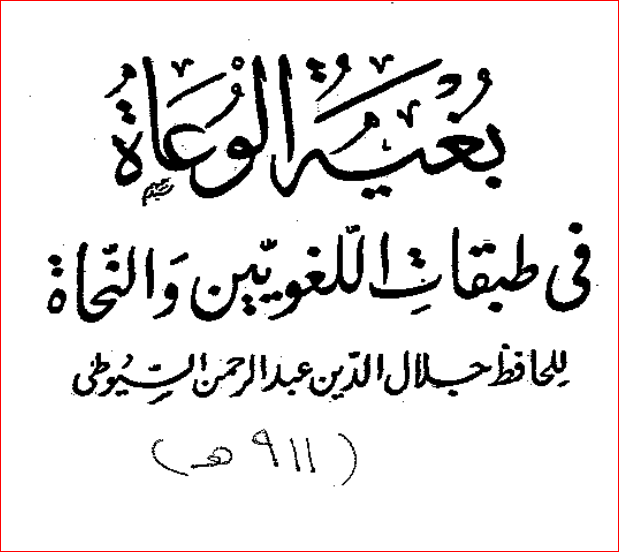 بُغْيَةُ الْوُعَاةُ
في طبقاتِ اللّغويّين وَالنّحاة
لِلحافظ جلال الدّين عبد الرحمن السِّيُوطي
(٩١١ هـ)